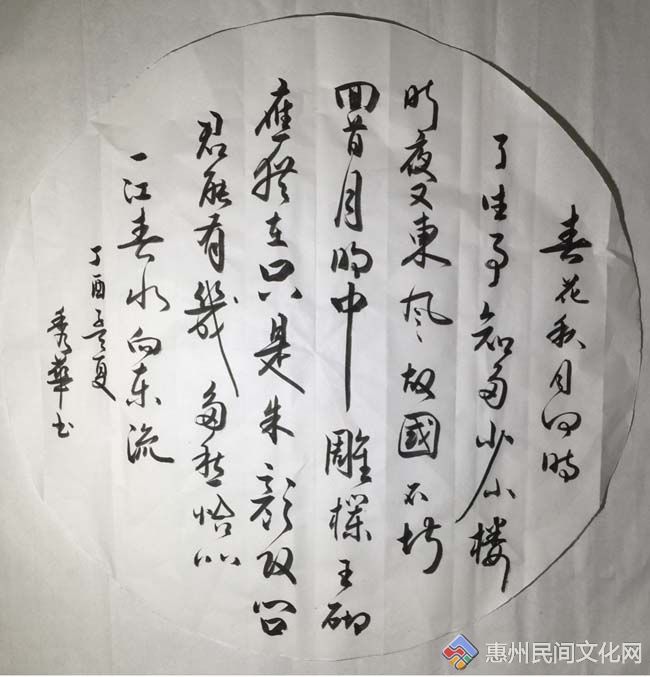 春花秋月何時
了往事知多少小楼
昨夜又東风故國不堪
回首月明中雕欄玉砌
應猶在只是朱颜改问
君能有幾多愁恰似
一江春水向东流
丁酉孟夏
秀華书
惠州民间文化网